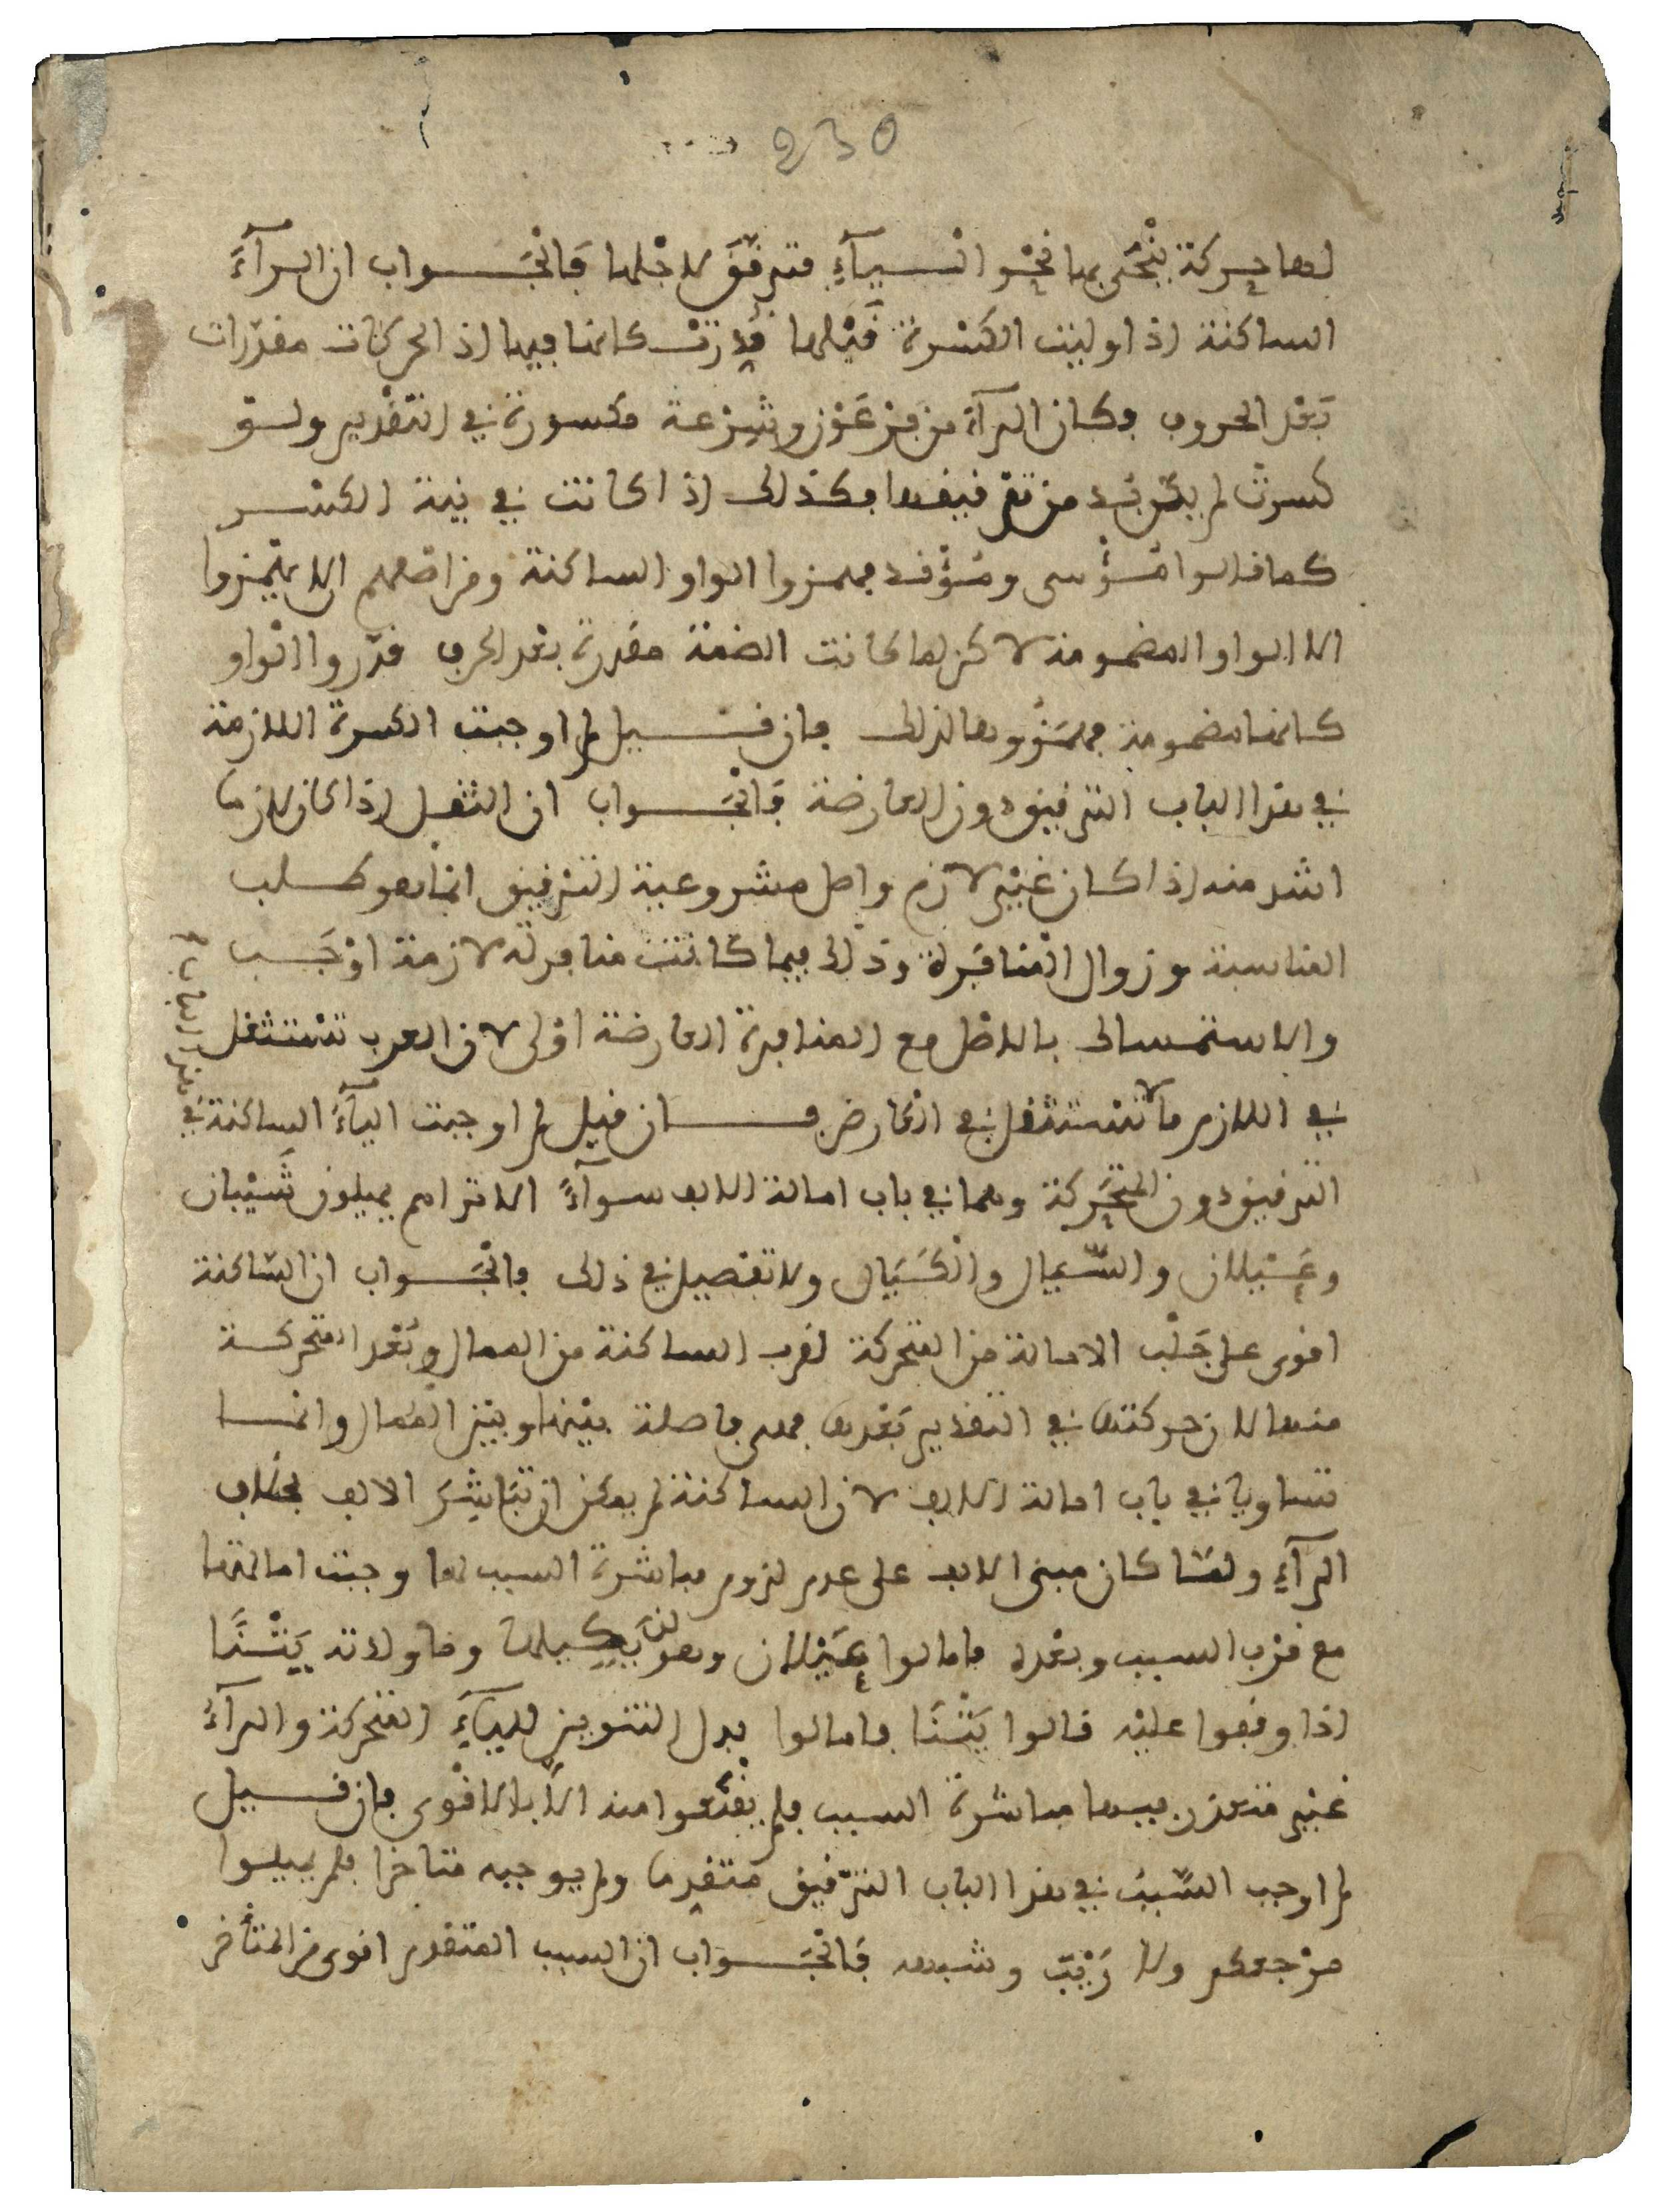 230
لها حركة يُنْحَى بها نحْو الْيآءِ فترقّقَ لاجْلها فَالْجَواب ان الرآءَ
الساكنة اذا وليت الكسْرة قَبْلها قُدِّرتْ كانها فيها اذ الحركات مقدّرات
بَعْد الحروف فكان الرآءَ من فِرْعَوْن وشِرْعة مكسورة في التقْدير ولو
كسرتْ لم يكن بُد من تَرْقيقها فكذلك اذا كانت في نية الكسْر
كما قالوا مُؤْسى ومُؤْقد فهمزوا الواو الساكنة ومن اصلهم الا يهْمزوا
الا الواو المضمومة لاكن لما كانت الضمة مقدرة بعْد الحرف قدّروا الْواو
كانها مضمومة فهمَزُوها لذلك فان قيل لم اوجبت الكسرة اللازمة
في هذا الباب الترقيق دون العارضة فَالْجَواب ان الثقل اذا كان لازما
اشد منه اذا كان غيْر لازم واصل مشروعية التّرْقيق انما هو طلب
المناسبة وزوال الْمنافَرة وذلك فيما كانت منافرته لازمة اوْجَب
والاستمساك بالاصْل مع المنافرة العارضة اوْلى لان العرب تسْتثقل
في اللازم ما لا تسْتثقل في الْعارض فان قيل لم اوجبت اليآءُ الساكنة في هذا الباب
الترقيق دون المتحَرِّكة وهما في باب امالة الالف سوآءٌ الا تراهم يميلون شَيْبان
وعَيْلان والسَّيال والْكَيَال ولا تفصيل في ذلك فالْجَواب ان السّاكنة
اقوى على جَلْب الامالة من المتحركة لقرب الساكنة من الممال وبُعْد المتحركة
منه الا ان حركتها في التقدير بَعْدها فهى فاصلة بيْنها وبيْن المُمال وانما
تساويا في باب امالة الالف لان الساكنة لم يمكن ان تبَاشِرَ الالف بخلاف
الرآءِ ولمّا كان مبنى الالف على عدم لزوم مباشرة السبب لها وجبت امالتها
مع قرْب السبب وبعْده فامالوا عَيْلان وهو لن يَكِيلها وما ولاته بَيْنَنَا
اذا وقفوا عليْه قالوا بَيْنَنَا فامالوا بدل التنوين لليآءِ المتحركة والرآءُ
غيْر متعذر فيها مباشرة السبب فلم يقْنَعوا منه الّا بالاقْوى فان قيل
لم اوجب السّببُ في هذا الباب التّرْقيق متقدِّما ولم يوجبه متاخرا فلم يميلوا
مرْجعكم ولا رَيْبَ وشبهه فَالْجَواب ان السبب المتقدم اقوى من المتأخر